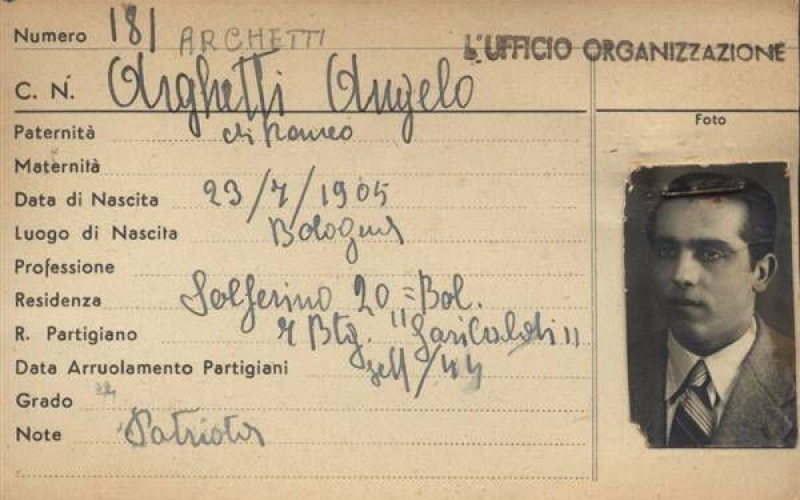 Numero 181 ARCHETTI
L'UFFICIO ORGANIZZAZIONE
C. N. Arghetti Angelo
Foto
Paternità di Romeo
Maternità
Data di Nascita 23/7/1905
Luogo di Nascita Bologna
Professione
Residenza Solferino 20 = Bol.
R. Partigiano 7 Btg. "Garibaldi"
Data Arruolamento Partigiani sett/44
Grado
Note Patriota